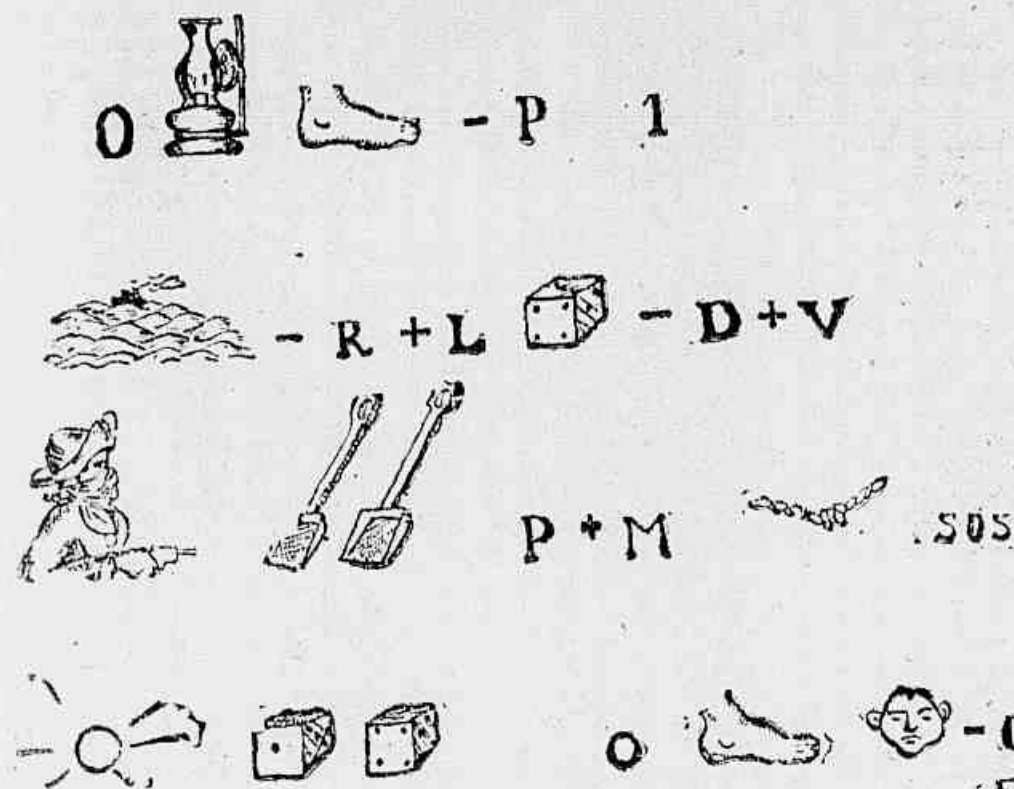 O - P 1
- R + L - D + V
P + M .SOS
O -